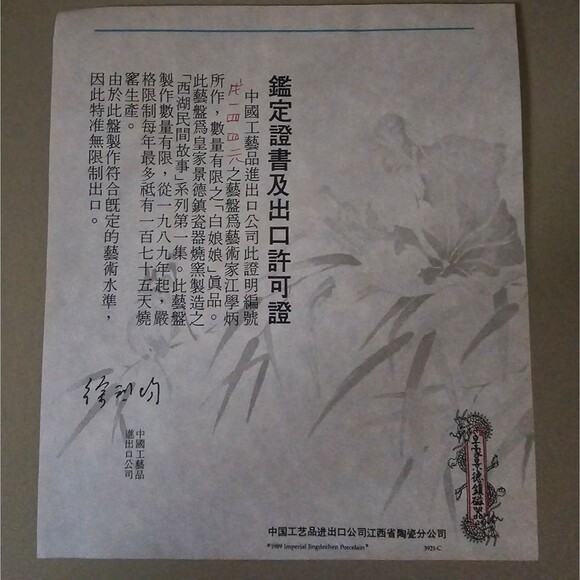 鑑定證書及出口許可證
中國工藝品進出口公司此證明編號
之藝盤爲藝術家江學炳
所作，數量有限之「白娘娘」眞品。
此藝盤爲皇家景德鎮瓷器燒窯製造之
「西湖民間故事」系列第一集。此藝盤
製作數量有限，從一九八九年起，嚴
格限制每年最多祗有一百七十五天燒
窰生產。
由於此盤製作符合旣定的藝術水準，
因此特准無限制出口。
中國工藝品
進出口公司
皇家景德鎮磁器
中国工艺品进出口公司江西省陶瓷分公司
©1989 Imperial Jingdezhen Porcelain® 3921-C